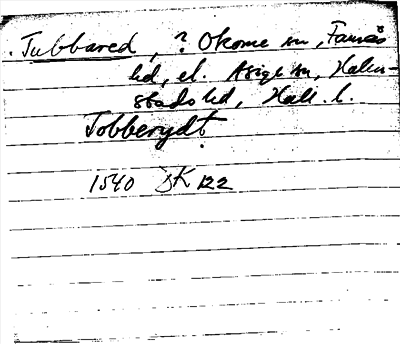 Tubbared, ? Okome sn, Faurås
hd, el. Asige sn, Halm-
stads hd, Hall. l.
Tobberydt
1540 DK 122